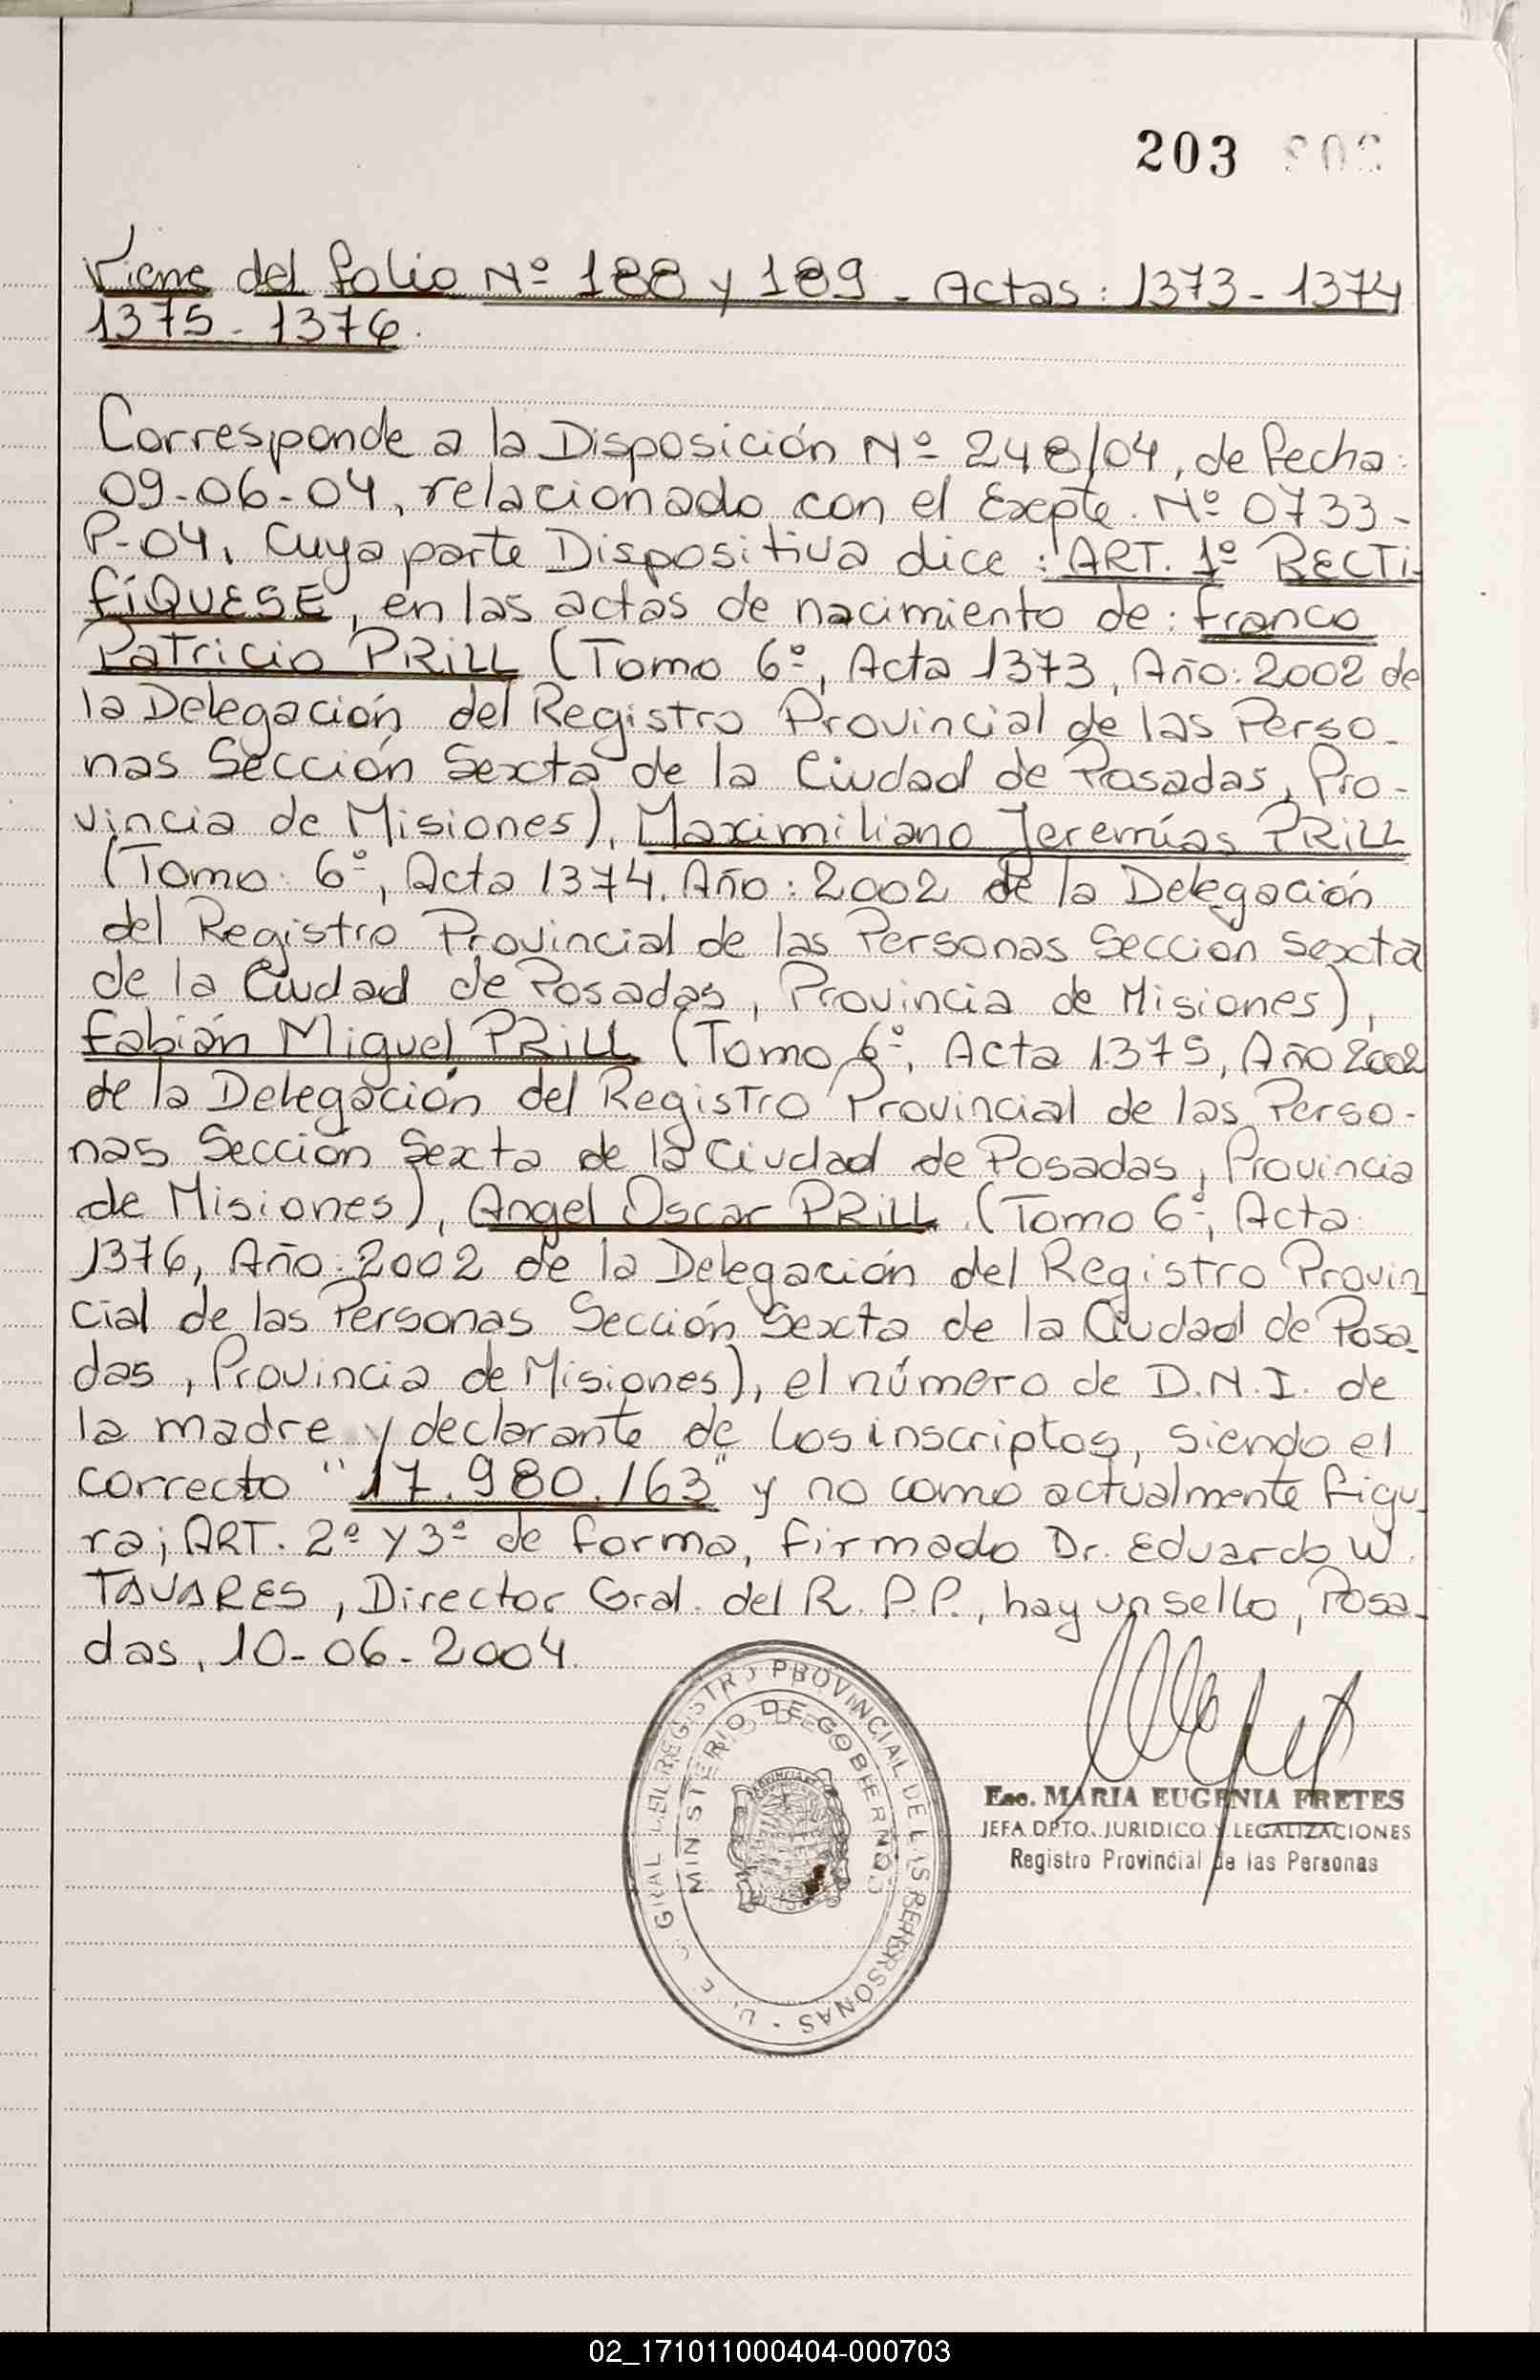 203
Viene del folio Nº 188 y 189 - Actas: 1373 - 1374
1375 - 1376.
Corresponde a la Disposición Nº 248/04, de fecha:
09-06-04, relacionado con el Expte. Nº 0733-
P-04. Cuya parte Dispositiva dice: ART. 1º RECTI-
FÍQUESE, en las actas de nacimiento de: Franco
Patricio PRILL (Tomo 6º, Acta 1373, Año: 2002 de
la Delegación del Registro Provincial de las Perso-
nas Sección Sexta de la Ciudad de Posadas, Pro-
vincia de Misiones), Maximiliano Jeremías PRILL
(Tomo: 6º, Acta 1374. Año: 2002 de la Delegación
del Registro Provincial de las Personas Sección Sexta
de la Ciudad de Posadas, Provincia de Misiones),
Fabián Miguel PRILL (Tomo 6º, Acta 1375, Año 2002
de la Delegación del Registro Provincial de las Perso-
nas Sección Sexta de la Ciudad de Posadas, Provincia
de Misiones), Angel Oscar PRILL (Tomo 6º, Acta
1376, Año: 2002 de la Delegación del Registro Provin
cial de las Personas Sección Sexta de la Ciudad de Posa-
das, Provincia de Misiones), el número de D.N.I. de
la madre y declarante de los inscriptos, siendo el
correcto "17.980.163" y no como actualmente figu-
ra; ART. 2º y 3º de forma, firmado Dr. Eduardo W.
TAVARES, Director Gral. del R.P.P., hay un sello, Posa-
das, 10-06-2004.
REGISTRO PROVINCIAL DE LAS PERSONAS
MINISTERIO DE GOBIERNO
Esc. MARIA EUGENIA FRETES
JEFA DPTO. JURIDICO Y LEGALIZACIONES
Registro Provincial de las Personas
02_171011000404-000703